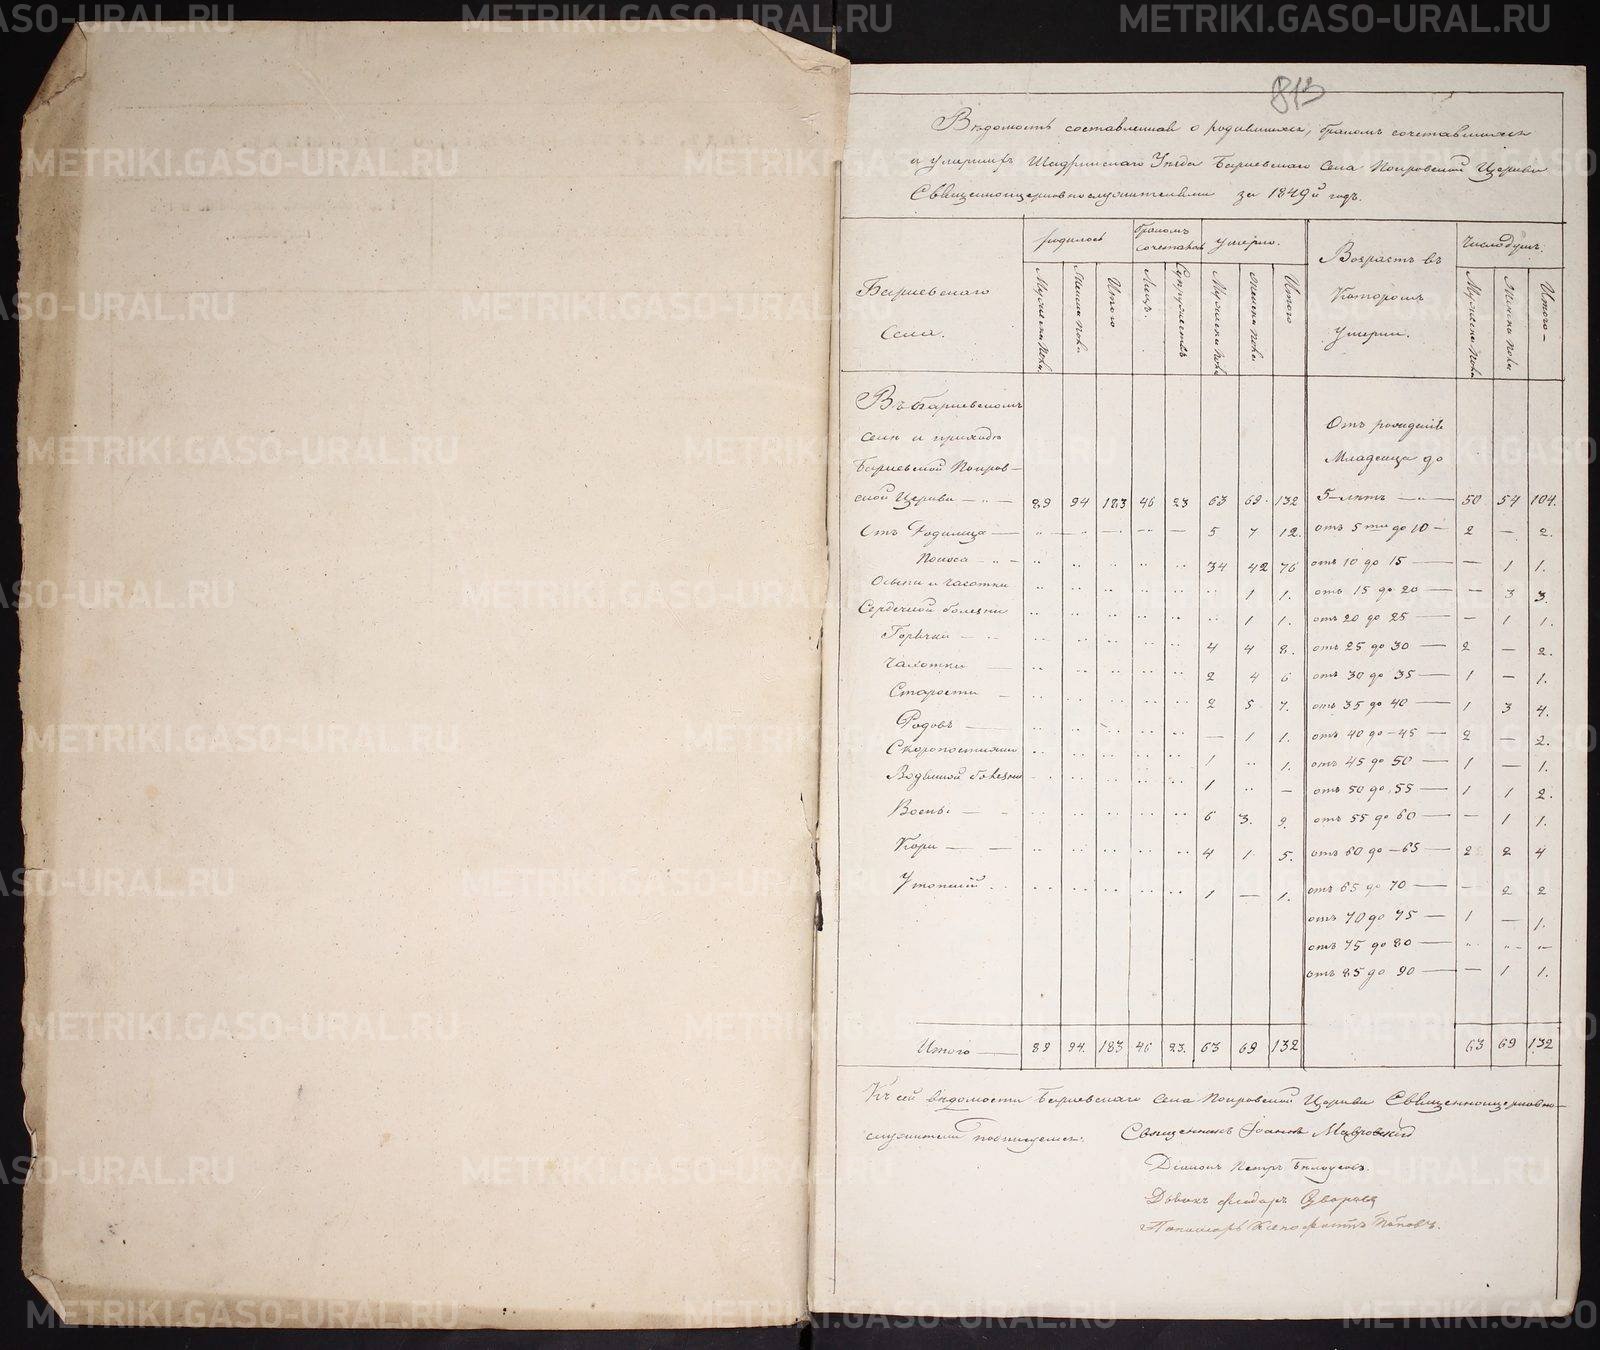 813
Вѣдомость составленная о родившихся, бракомъ сочетавшихся
и умершихъ Шадринскаго Уѣзда Баривскаго Села Покровской Церкви
Священноцерковнослужителями за 1849й годъ.
родилось бракомъ сочетавш умерло. Возрастъ въ Которомъ умерли. Число душъ.
Баривскаго Села.
Мужеска пола Женска пола Итого Лицъ. Супружествъ Мужеска пола Женска пола Итого Мужеска пола Женска пола Итого
Въ Баривскомъ
селѣ и приходѣ Отъ рожденія
Баривской Покров- Младенца до
ской Церкви — „ — 89 94 183 46 23 63 69 132 5-лѣтъ — „ — 50 54 104.
Отъ Родимца — „ — „ — — „ — 5 7 12. отъ 5ти до 10 — 2 — 2.
Поноса — „ — „ „ „ „ „ 34 42 76 отъ 10 до 15 — — 1 1.
Осыпи и чахотки „ „ „ „ „ „ 1 1. отъ 15 до 20 — — 3 3.
Сердечной болезни „ „ „ „ „ „ 1 1. отъ 20 до 25 — — 1 1.
Горячки — „ „ „ „ „ „ 4 4 8. отъ 25 до 30 — 2 — 2.
Чахотки — „ „ „ „ „ 2 4 6 отъ 30 до 35 — 1 — 1.
Старости — „ „ „ „ „ 2 5 7. отъ 35 до 40 — 1 3 4.
Родовъ — „ „ „ „ „ — 1 1. отъ 40 до — 45 — 2 — 2.
Скоропостижно „ „ „ „ „ 1 „ 1. отъ 45 до 50 — 1 — 1.
Водяной болезни „ „ „ „ „ 1 „ — отъ 50 до 55 — 1 1 2.
Воспы — „ „ „ „ „ 6 3. 9. отъ 55 до 60 — — 1 1.
Кори — — „ „ „ „ „ 4 1 5. отъ 60 до — 65 — 2 2 4
Утопшій „ „ „ „ „ „ 1 — 1. отъ 65 до 70 — — 2 2
отъ 70 до 75 — 1 — 1.
отъ 75 до 80 — „ „ „
отъ 85 до 90 — — 1 1.
Итого — 89 94. 183 46 23. 63 69 132 63 69 132
Къ сей вѣдомости Баривскаго Села Покровской Церкви Священноцерковно-
служители подписуемся. Священникъ Іоаннъ Мавровскій
Діаконъ Петръ Бѣлоусовъ.
Дьячокъ Феодоръ
Пономарь Ксенофонтъ Поповъ.
METRIKI.GASO-URAL.RU